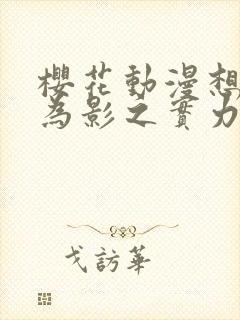 櫻花動漫想
為影之實力
戈訪華